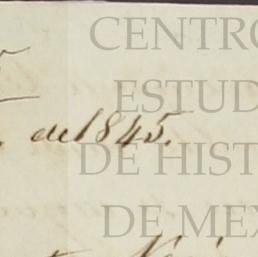 CENTRO
ESTUD
del 1845.
DE HIST
DE MEX